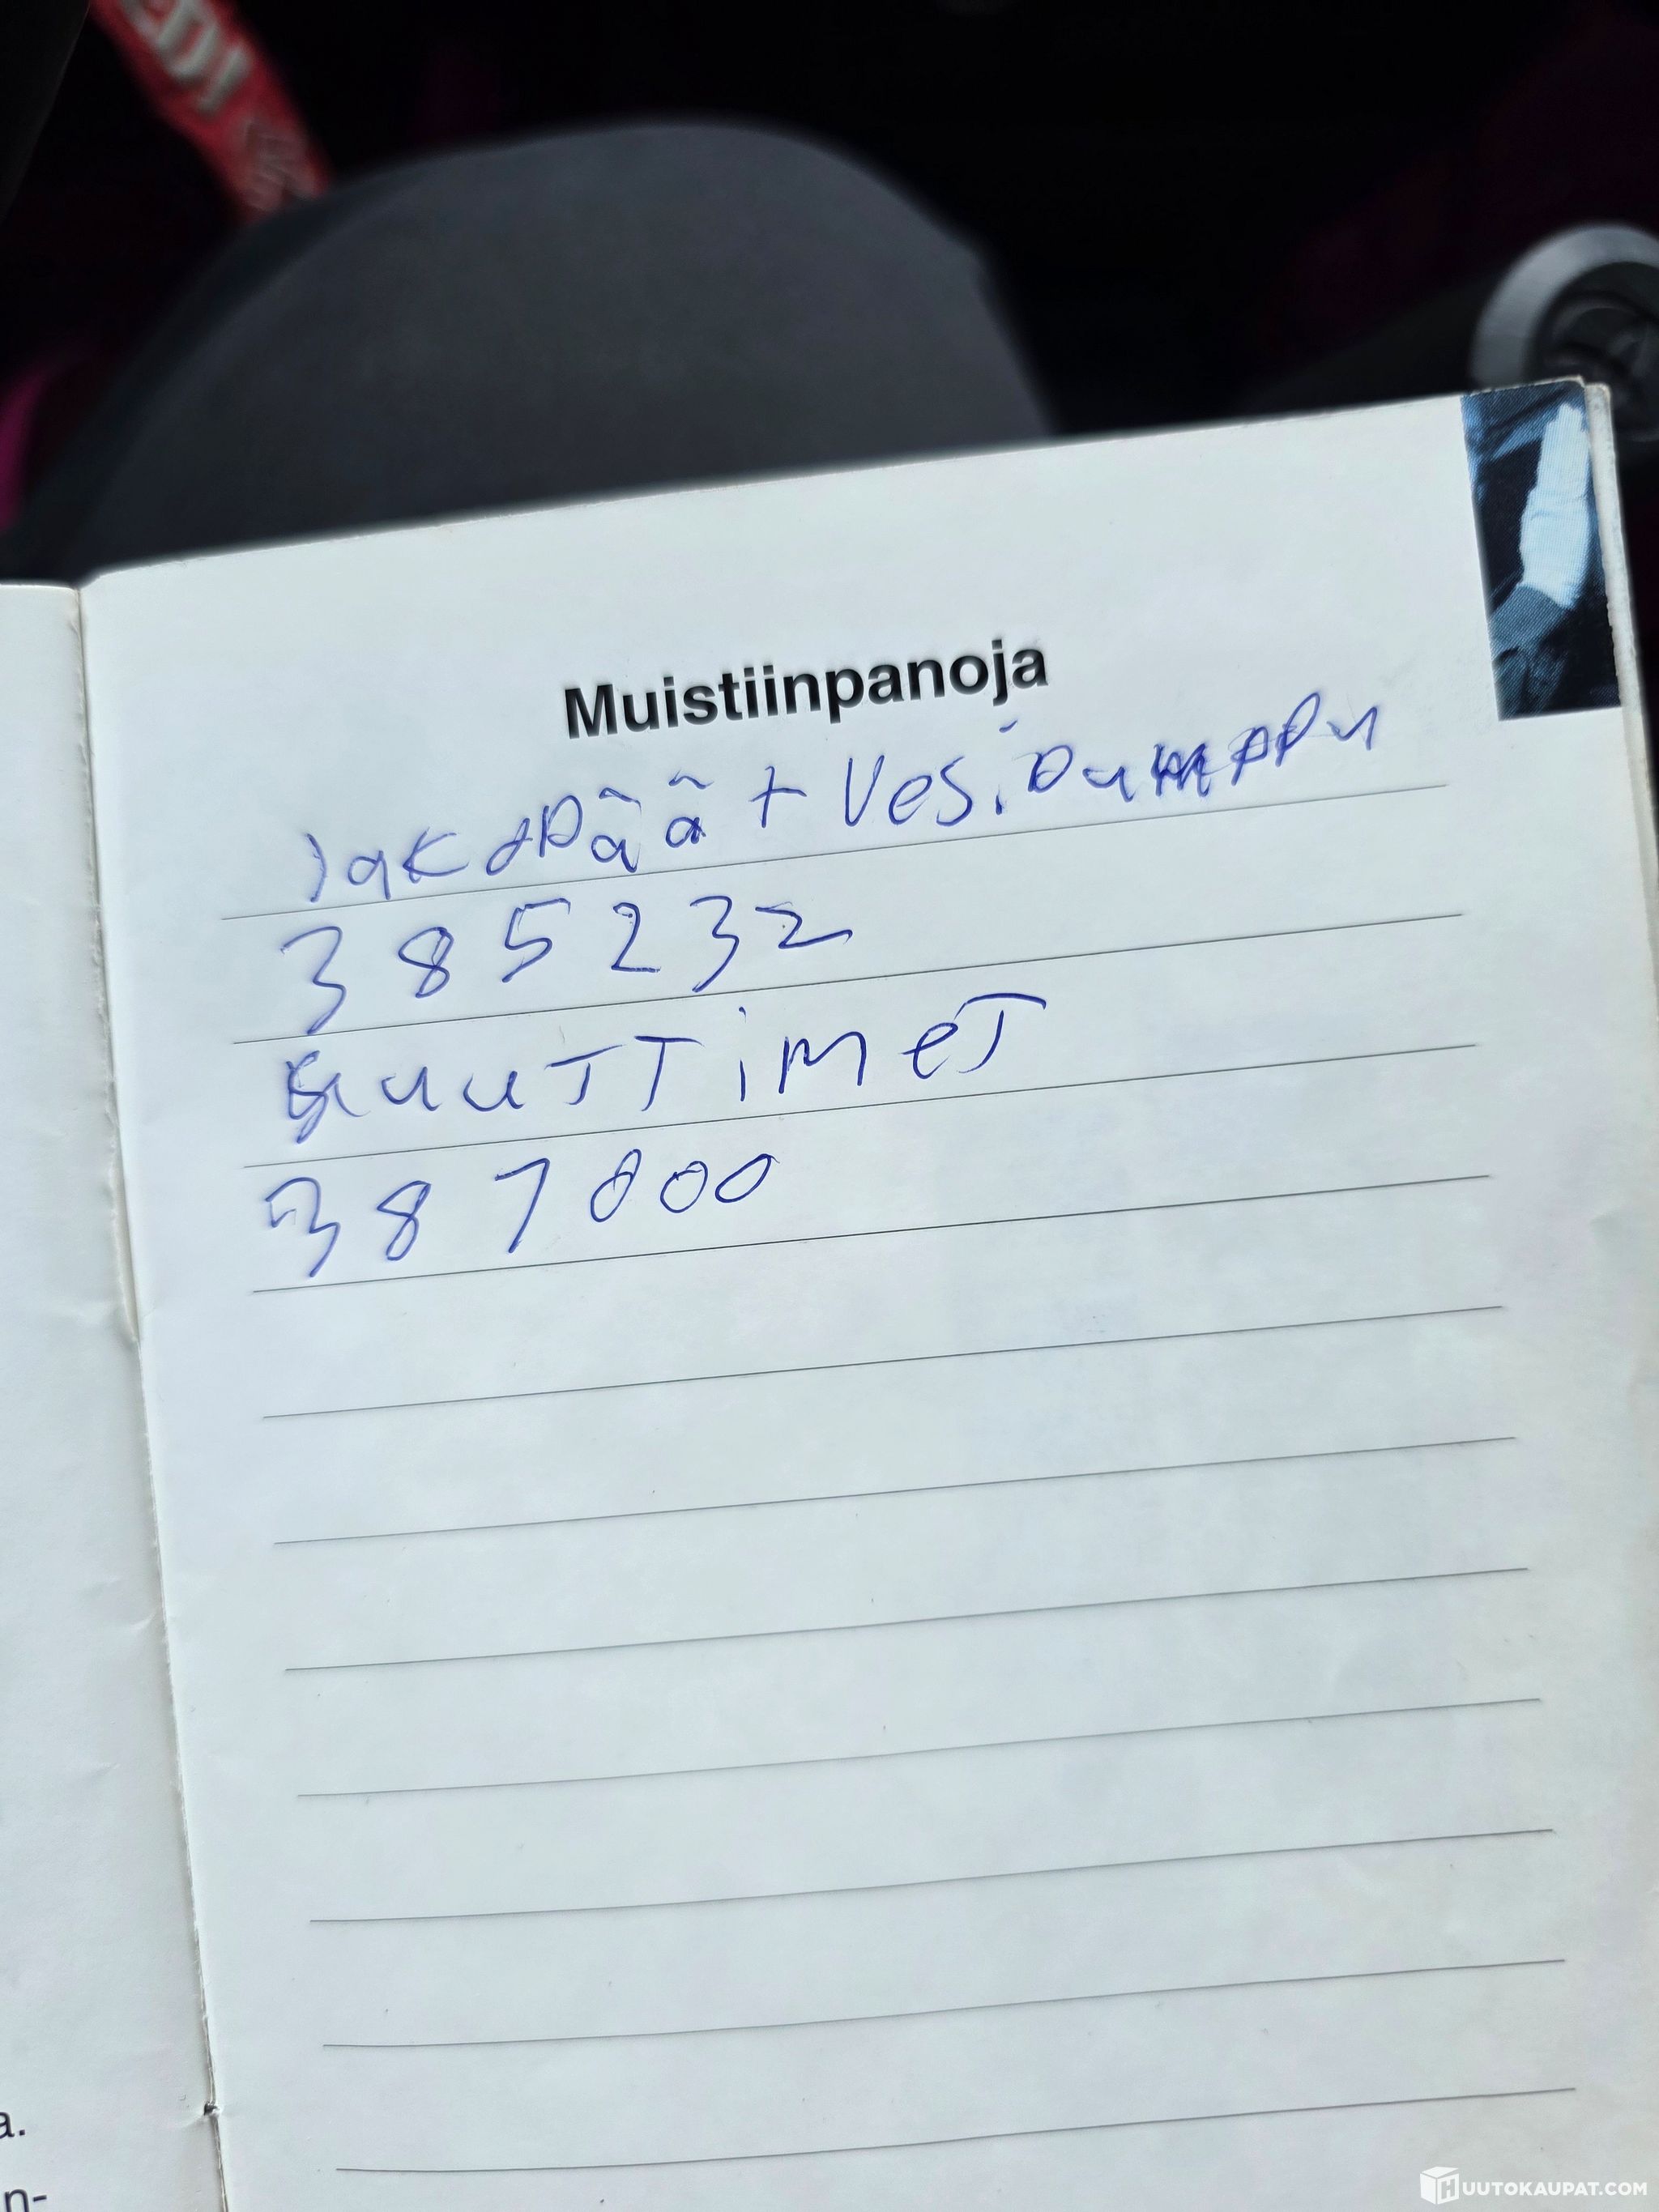 Muistiinpanoja
jakopää + Vesipumppu
385232
suuttimet
387000
a.
n-
HUUTOKAUPAT.COM